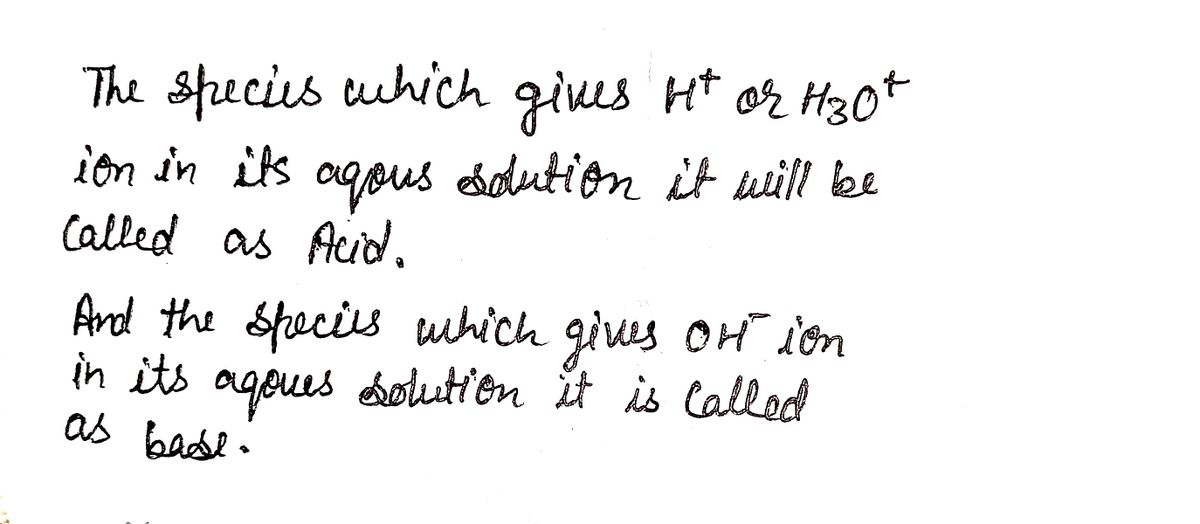 The species which gives H⁺ or H₃O⁺
ion in its aqous solution it will be
called as Acid.
And the species which gives OH⁻ ion
in its aqoues solution it is called
as base.